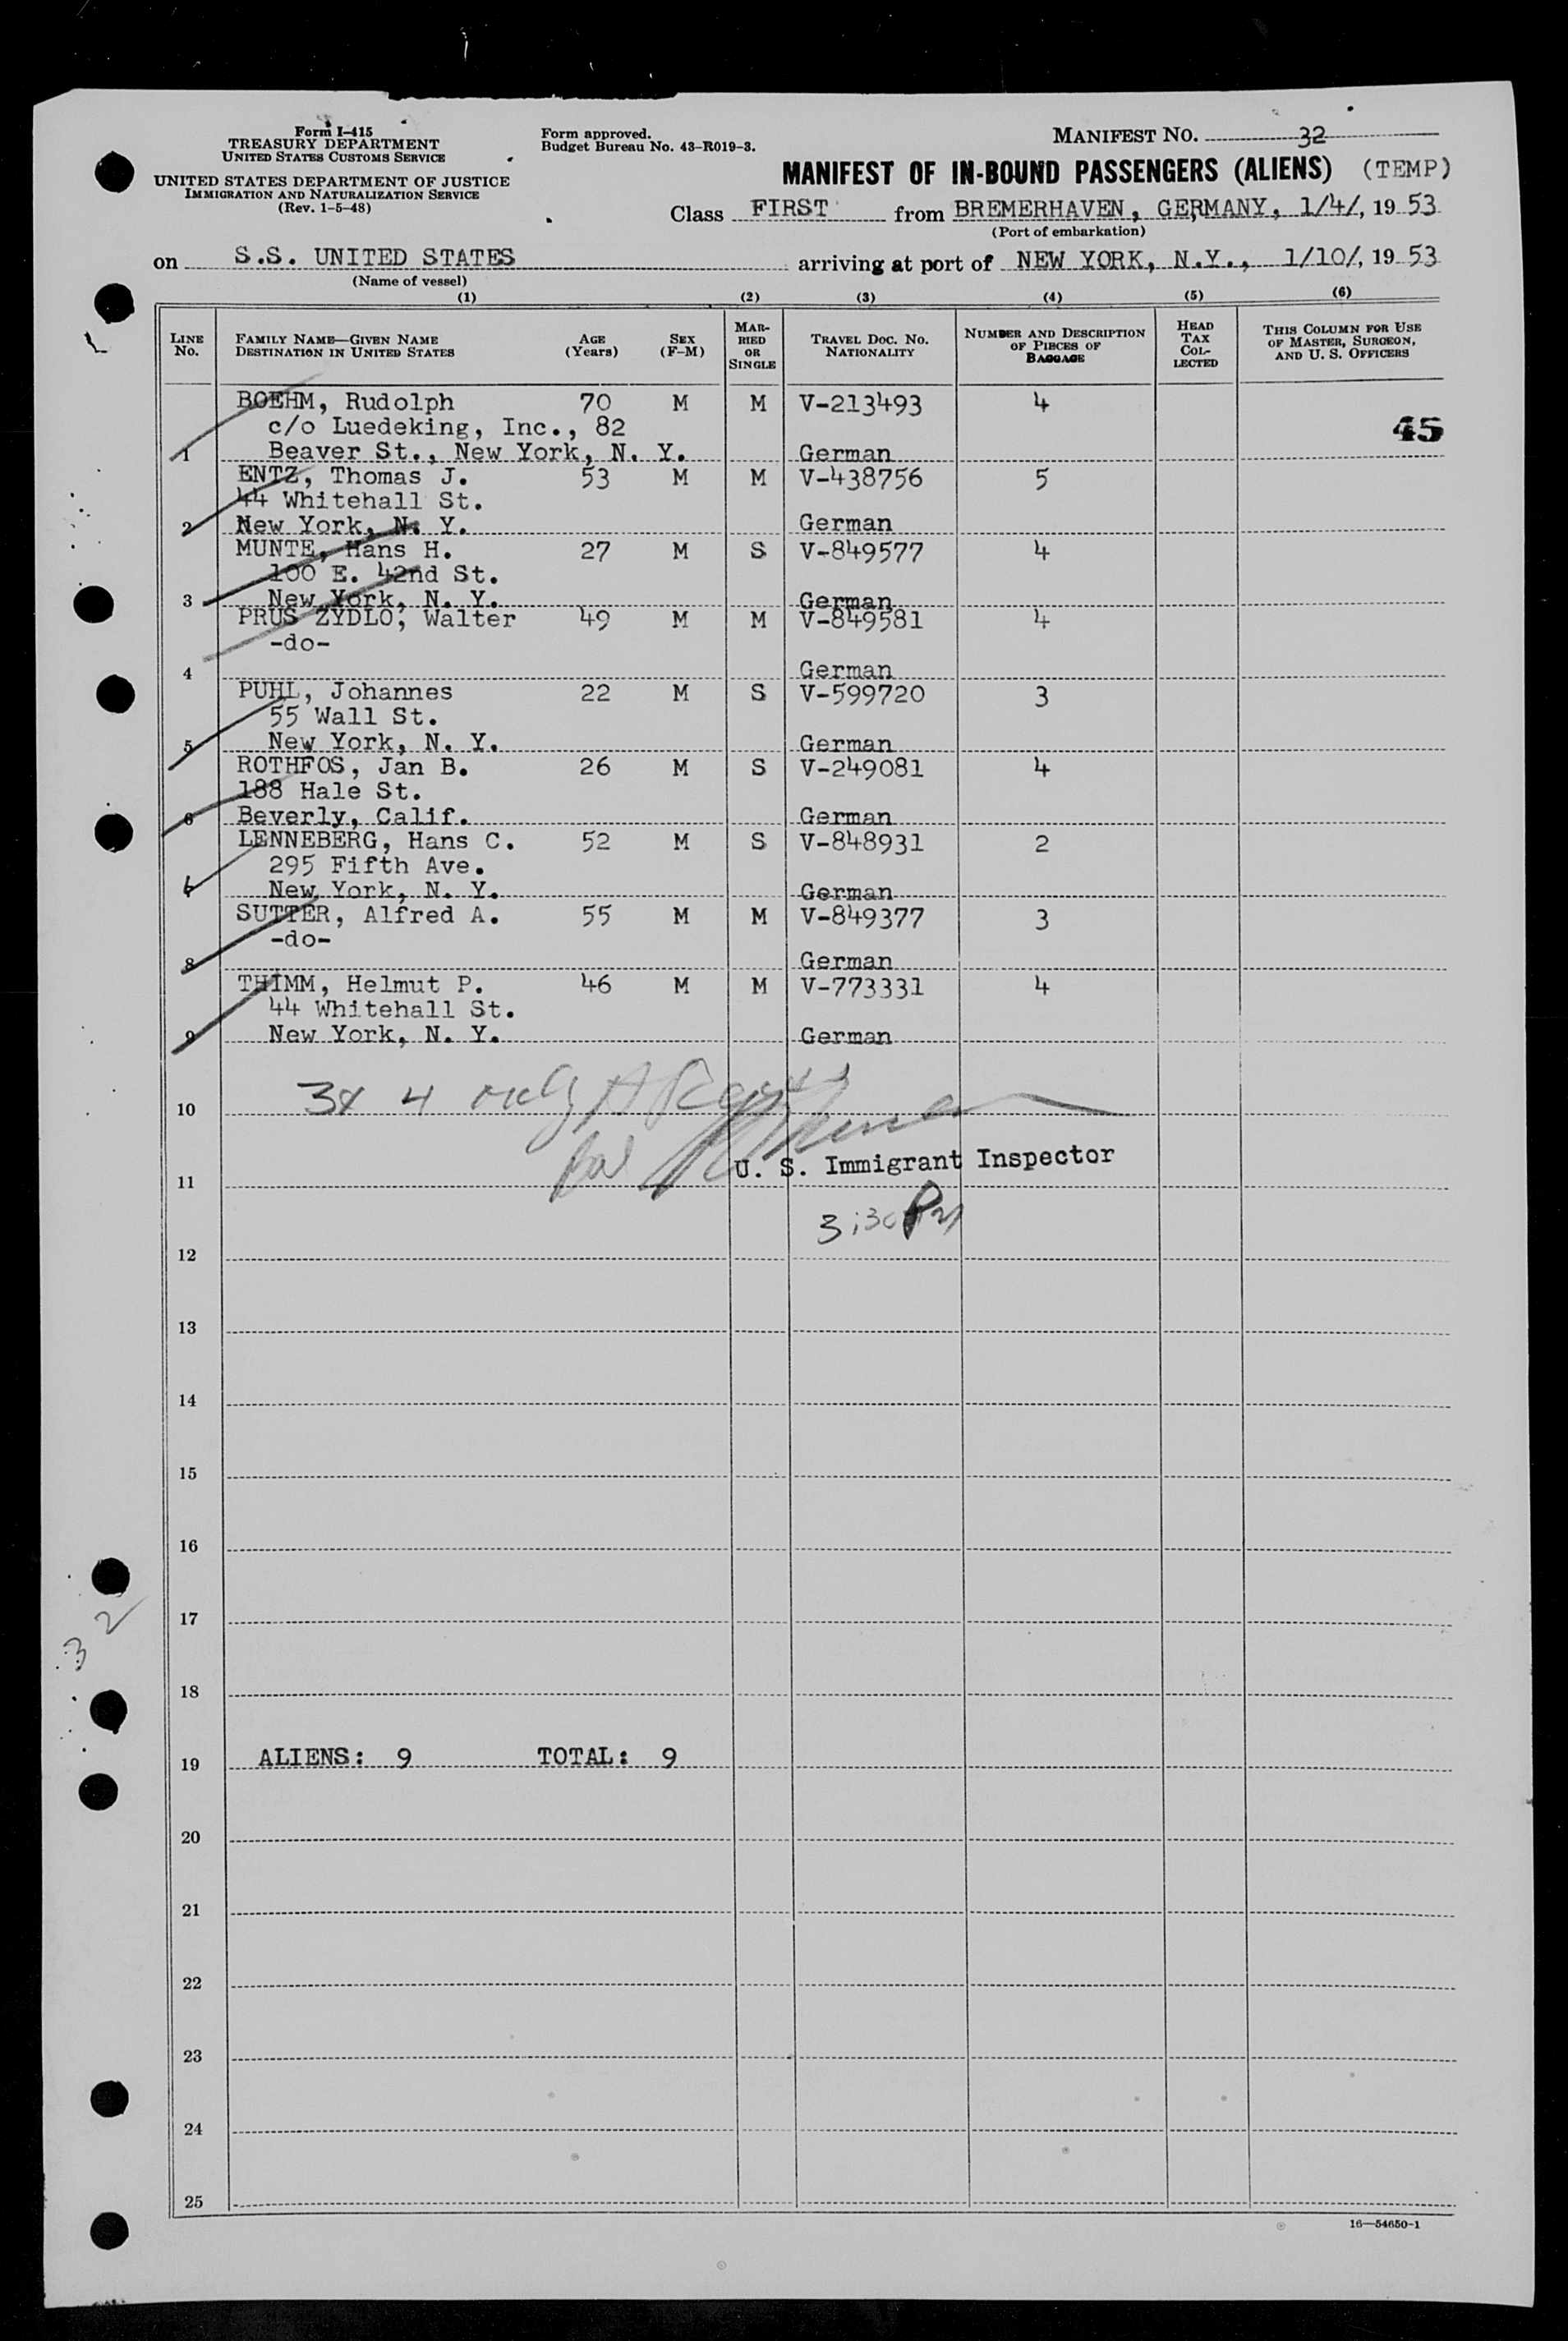 Form I-415
TREASURY DEPARTMENT
UNITED STATES CUSTOMS SERVICE
UNITED STATES DEPARTMENT OF JUSTICE
IMMIGRATION AND NATURALIZATION SERVICE
(Rev. 1-5-48)
Form approved.
Budget Bureau No. 43-R019-3.
MANIFEST NO. 32
MANIFEST OF IN-BOUND PASSENGERS (ALIENS) (TEMP)
Class FIRST from BREMERHAVEN, GERMANY, 1/4/, 1953
(Port of embarkation)
on S.S. UNITED STATES arriving at port of NEW YORK, N.Y., 1/10/, 1953
(Name of vessel)
(1) (2) (3) (4) (5) (6)
LINE No. FAMILY NAME—GIVEN NAME DESTINATION IN UNITED STATES AGE (Years) SEX (F-M) MARRIED OR SINGLE TRAVEL DOC. NO. NATIONALITY NUMBER AND DESCRIPTION OF PIECES OF BAGGAGE HEAD TAX COLLECTED THIS COLUMN FOR USE OF MASTER, SURGEON, AND U. S. OFFICERS
BOEHM, Rudolph 70 M M V-213493 4
c/o Luedeking, Inc., 82
45
1 Beaver St., New York, N. Y. German
ENTZ, Thomas J. 53 M M V-438756 5
44 Whitehall St.
2 New York, N. Y. German
MUNTE, Hans H. 27 M S V-849577 4
100 E. 42nd St.
3 New York, N. Y. German
PRUS ZYDLO, Walter 49 M M V-849581 4
-do-
4 German
PUHL, Johannes 22 M S V-599720 3
55 Wall St.
5 New York, N. Y. German
ROTHFOS, Jan B. 26 M S V-249081 4
188 Hale St.
6 Beverly, Calif. German
LENNEBERG, Hans C. 52 M S V-848931 2
295 Fifth Ave.
New York, N. Y. German
SUTTER, Alfred A. 55 M M V-849377 3
-do-
8 German
THIMM, Helmut P. 46 M M V-773331 4
44 Whitehall St.
9 New York, N. Y. German
10 3 & 4 only
U. S. Immigrant Inspector
11
3:30 PM
12
13
14
15
16
17
32
18
19 ALIENS: 9 TOTAL: 9
20
21
22
23
24
25
16—54650-1